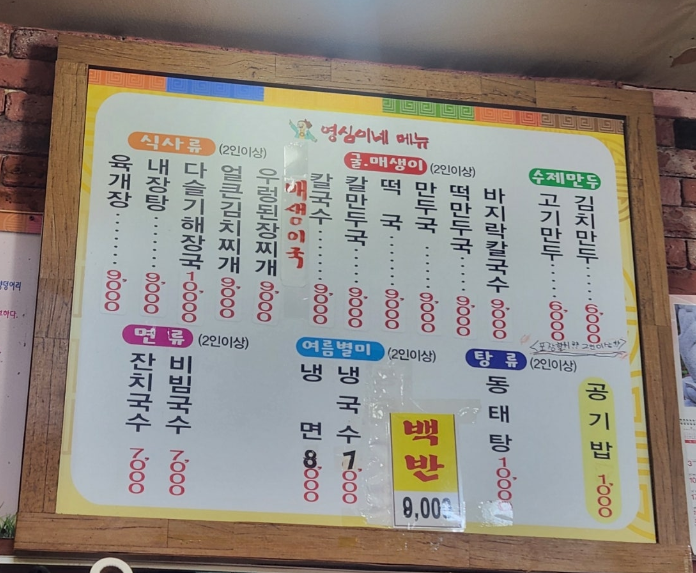 영심이네 메뉴
식사류 (2인이상)
육개장 9,000
내장탕 9,000
다슬기해장국 10,000
얼큰김치찌개 9,000
우렁된장찌개 9,000
매생이국
굴.매생이 (2인이상)
칼국수 9,000
칼만두국 9,000
떡국 9,000
만두국 9,000
떡만두국 9,000
바지락칼국수 9,000
수제만두
고기만두 6,000
김치만두 6,000
면류 (2인이상)
잔치국수 7,000
비빔국수 7,000
여름별미 (2인이상)
냉면 8,000
냉국수 7,000
백반
9,000
탕류 (2인이상)
동태탕
공기밥 1,000